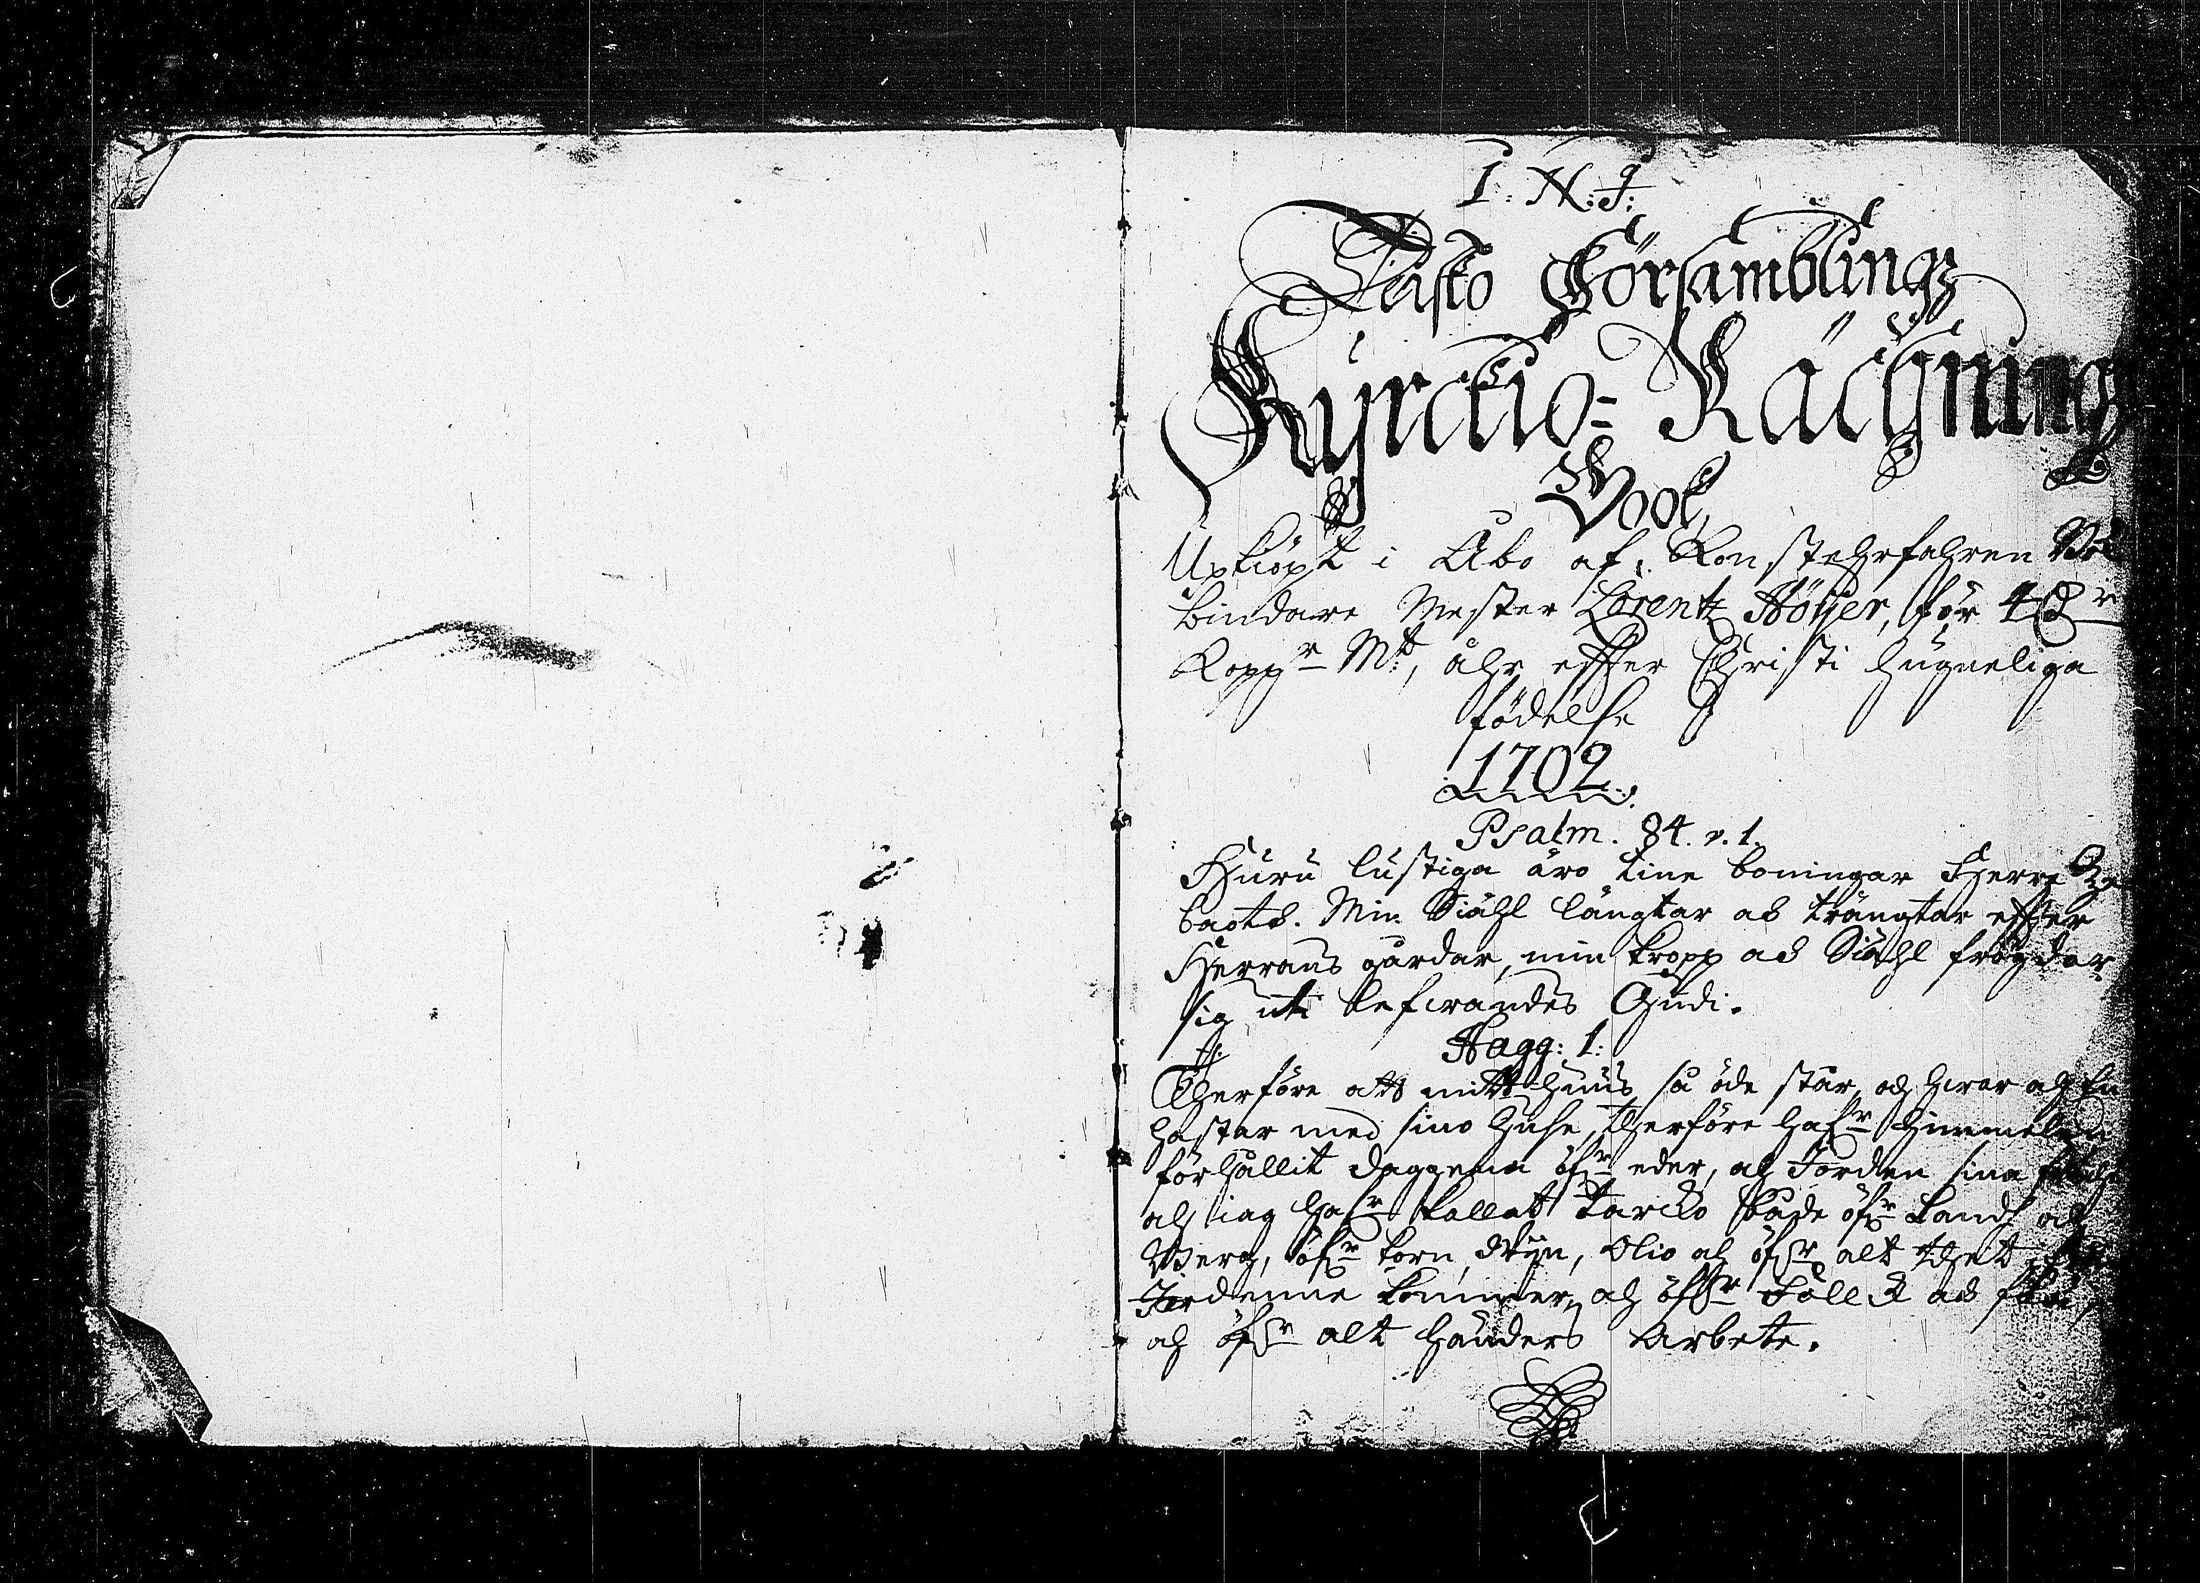 I: N: J:
Församblings
Kyrckio= Räckning
Book
Upkiöpt i Åbo af Konstehrfahren
bindare Mester Lorentz Höijer, för 4
Kopp:r M:t, åhr effter Christi hugneliga
födelse
1702.
Psalm. 84. v. 1.
Huru lustiga äro tine boningar Herre Ze
baoth. Min Siähl längtar och trängtar effter
Herrans gårdar, min kropp och Siähl frögdar
sig uti lefwandes Gudi.
Hagg: 1:
Therföre att mitt huus så öde står, och hwar och en
hastar med sino huse, therföre haf:r himmelen
förhållit daggena öf:r eder, och Jorden sina
och iag haf:r kallat torcko både öf:r land och
Berg, öf:r korn, Wijn, Olio och öf:r alt thet
Jordenne kommer, och öf:r Folck och
och öf:r alt händers Arbete.